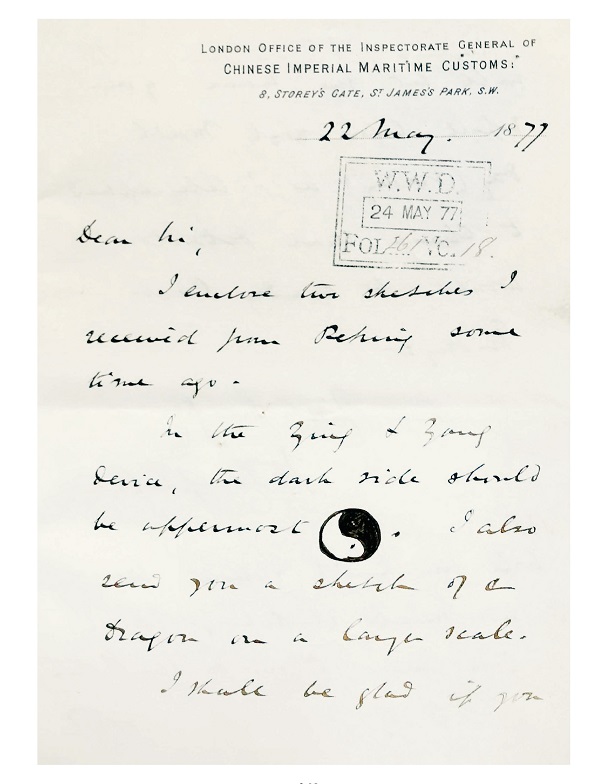 LONDON OFFICE OF THE INSPECTORATE GENERAL OF
CHINESE IMPERIAL MARITIME CUSTOMS:
8, STOREY'S GATE, ST JAMES'S PARK, S.W.
22 May. 1877
W.W.D.
24 MAY 77
FOL. 261 18.
Dear Sir,
I enclose two sketches I
received from Peking some
time ago.
In the Ying & Yang
Device, the dark side should
be uppermost . I also
send you a sketch of a
Dragon on a larger scale.
I shall be glad if you